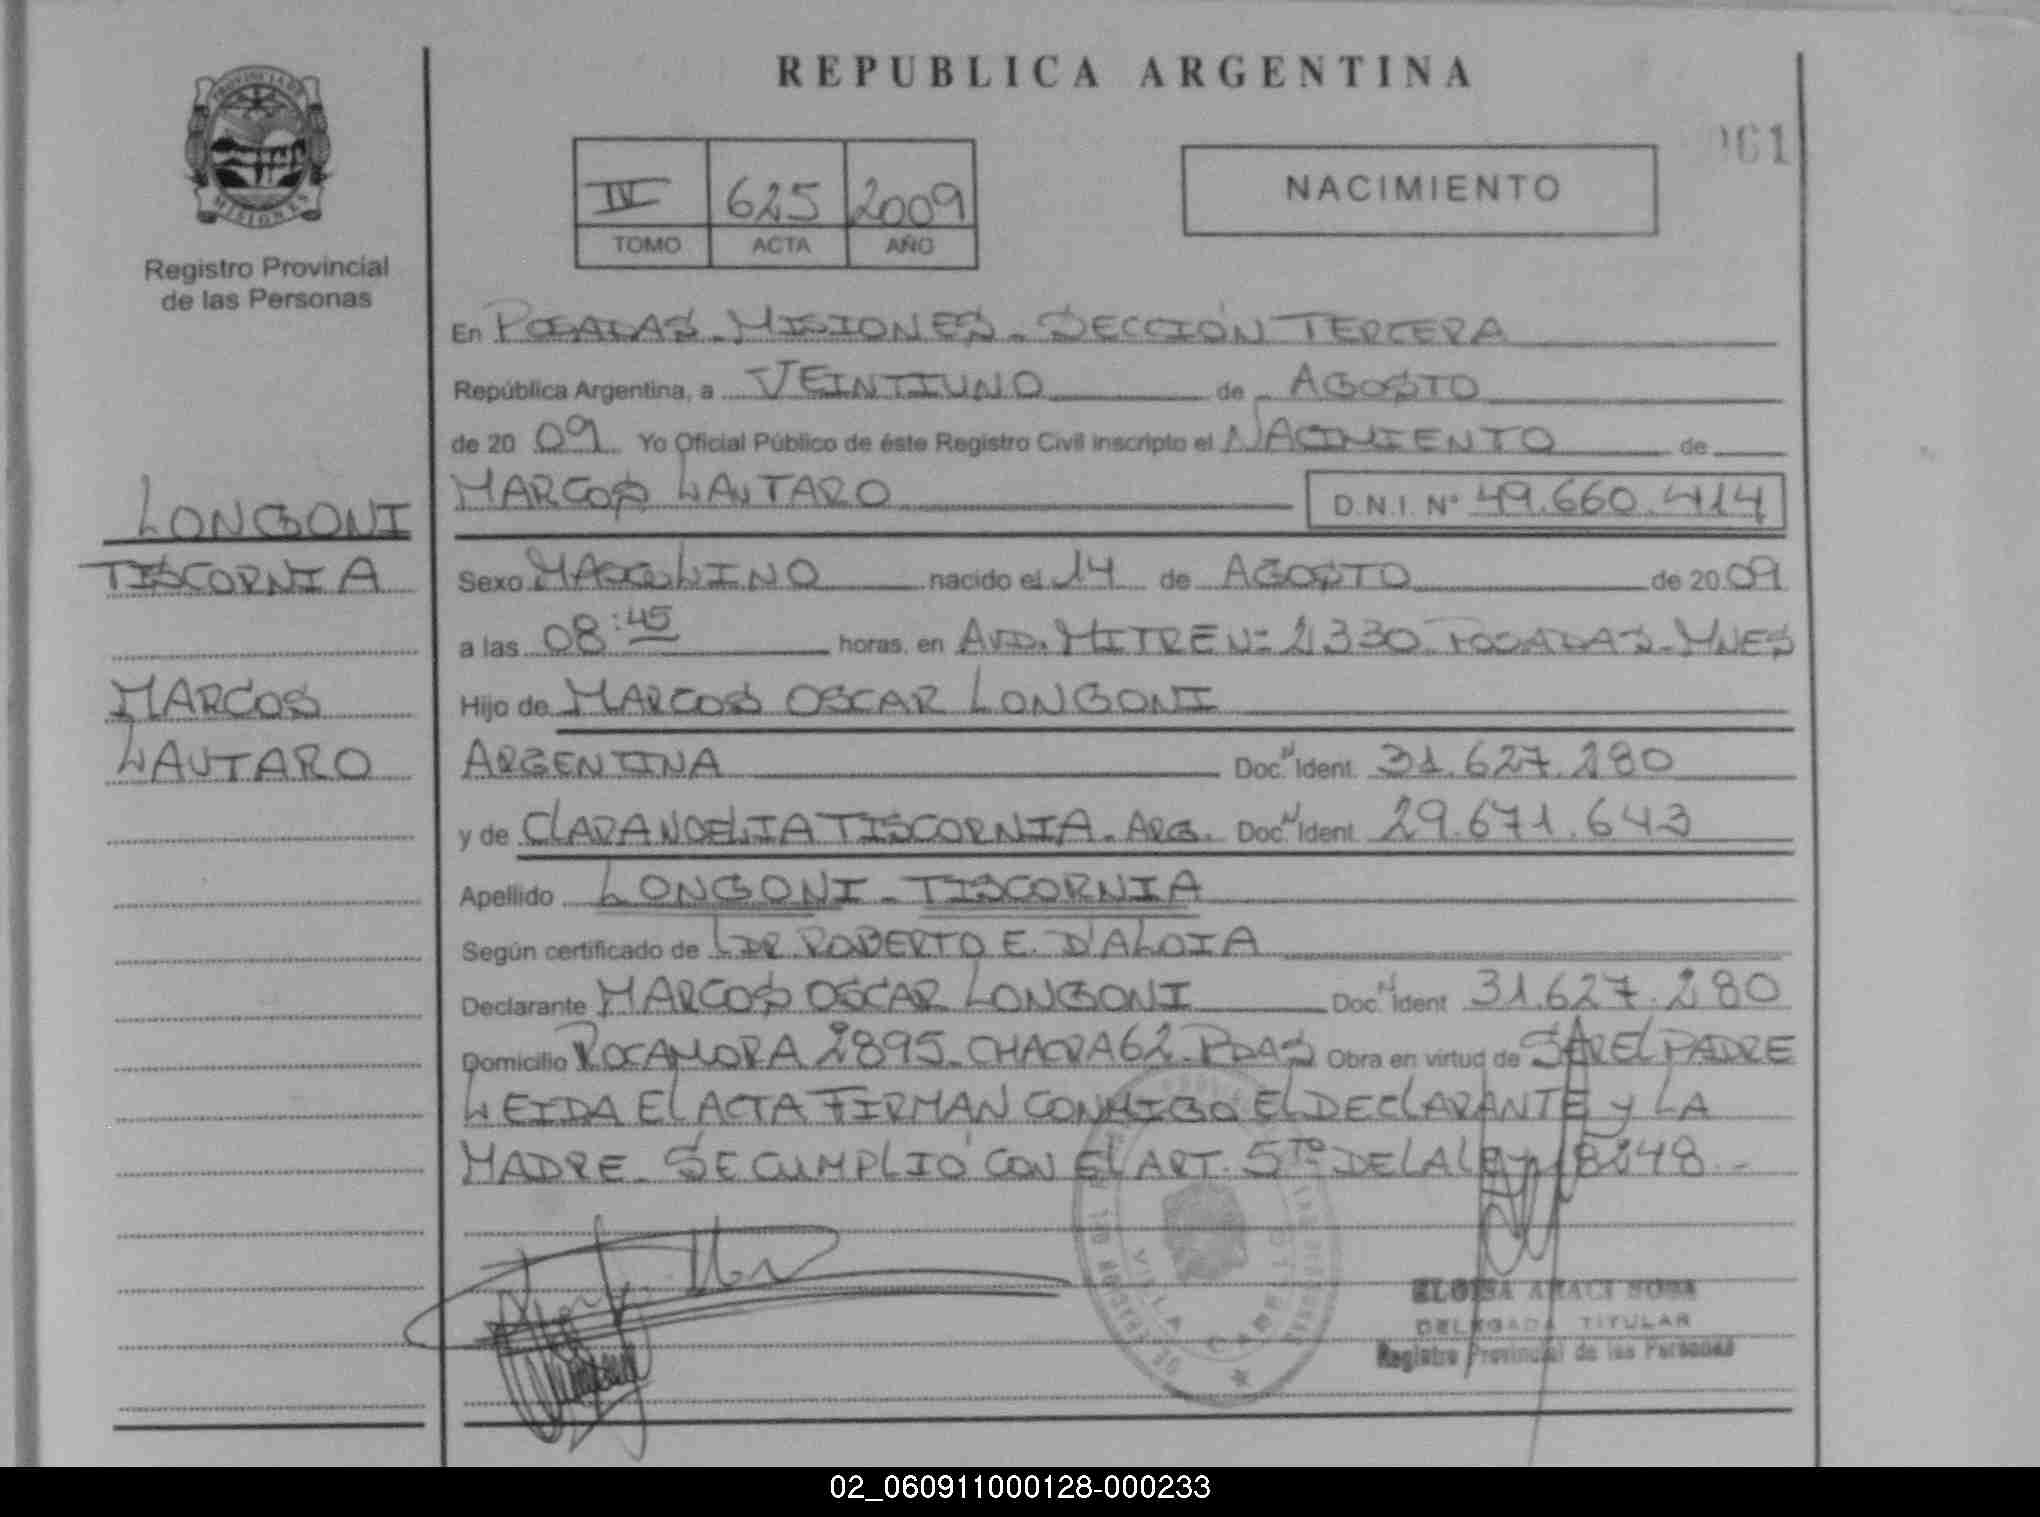 REPUBLICA ARGENTINA
PROVINCIA DE
MISIONES
Registro Provincial
de las Personas
IV 625 2009
TOMO ACTA AÑO
NACIMIENTO
061
En POSADAS - MISIONES - SECCIÓN TERCERA
República Argentina, a VEINTIUNO de AGOSTO
de 20 09 Yo Oficial Público de éste Registro Civil inscripto el NACIMIENTO de
MARCOS LAUTARO D.N.I. Nº 49.660.414
LONGONI
TISCORNIA
MARCOS
LAUTARO
Sexo MASCULINO nacido el 14 de AGOSTO de 20 09
a las 08:45 horas, en AVD. MITRE Nº 2330 - POSADAS - MNES
Hijo de MARCOS OSCAR LONGONI
ARGENTINA Doc. N Ident. 31.627.280
y de CLARA NOELIA TISCORNIA - ARG. Doc. N Ident. 29.671.643
Apellido LONGONI - TISCORNIA
Según certificado de DR. ROBERTO E. D'ALOIA
Declarante MARCOS OSCAR LONGONI Doc. N Ident 31.627.280
Domicilio ROCAMORA 2895 - CHACRA 62 - PDAS Obra en virtud de SER EL PADRE
LEIDA EL ACTA FIRMAN CONMIGO EL DECLARANTE y LA
MADRE - SE CUMPLIÓ CON EL ART. 5to DE LA LEY 18248.-
VILLA CABELLO
ELOISA ARACI SOSA
DELEGADA TITULAR
Registro Provincial de las Personas
02_060911000128-000233